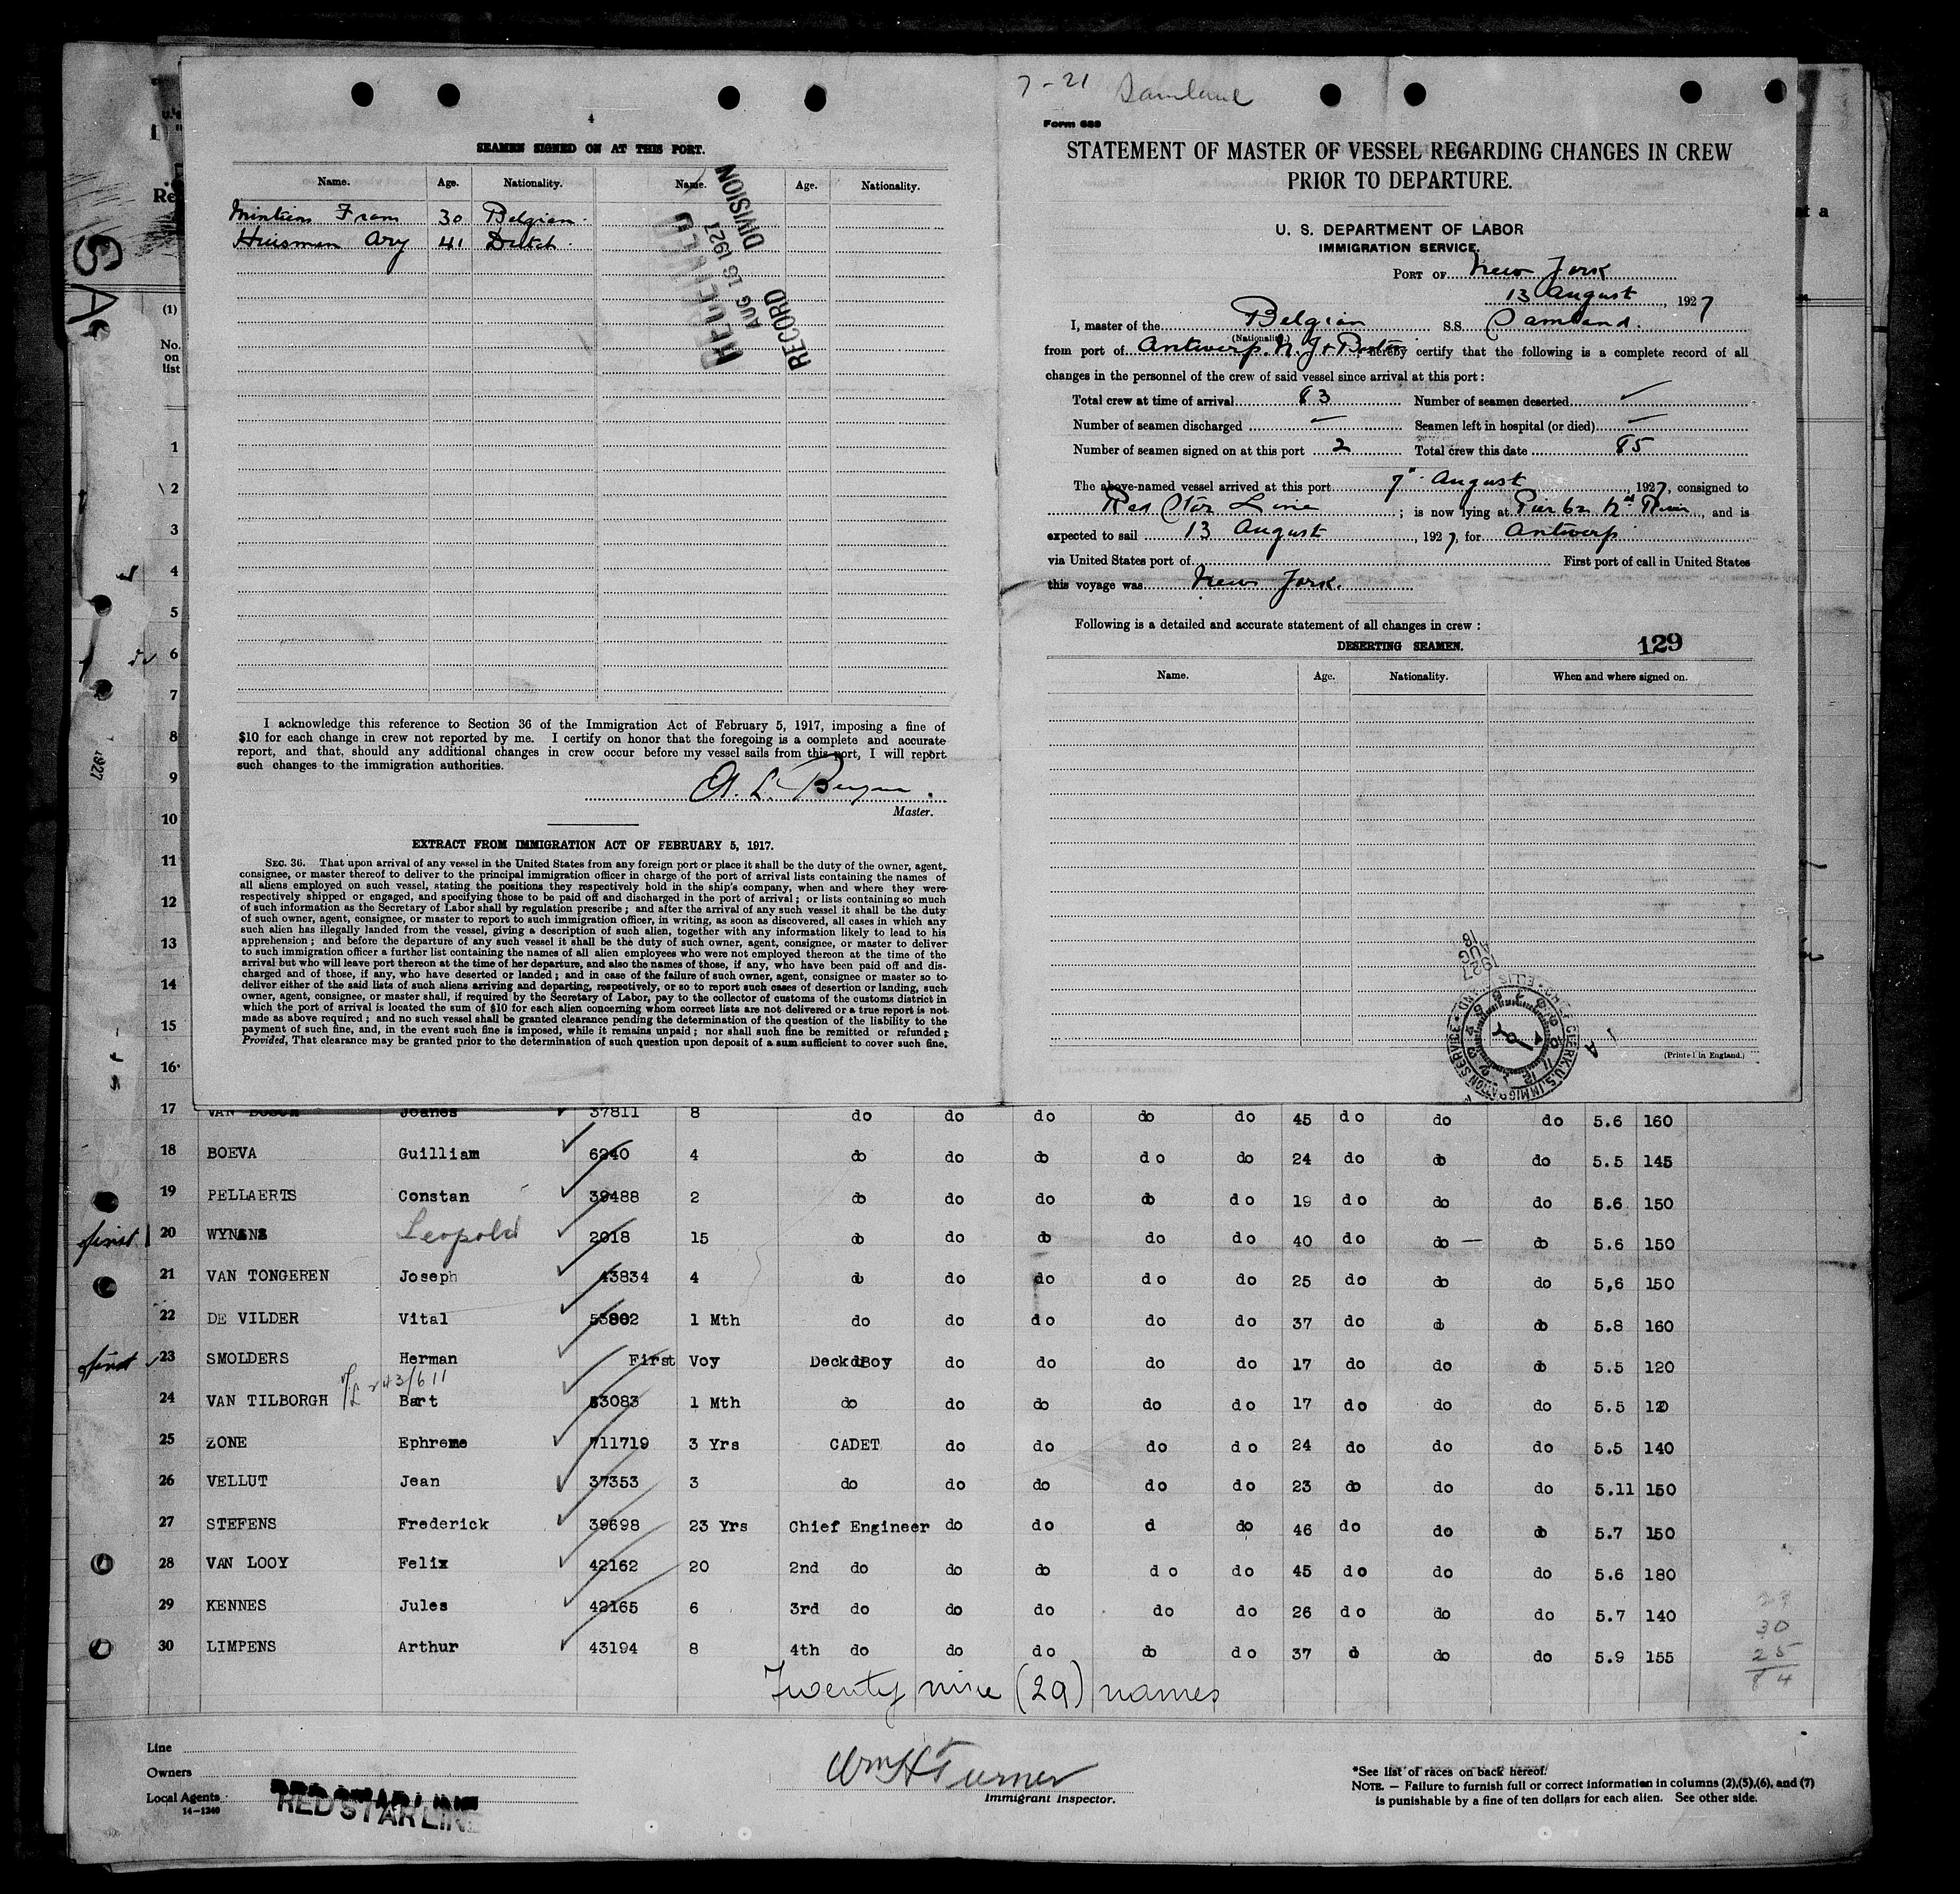 4
SEAMEN SIGNED ON AT THIS PORT.
Name. Age. Nationality. Name. Age. Nationality.
Frans 30 Belgian
Huisman Ary 41 Dutch
RECEIVED
AUG 16 1927
RECORD DIVISION
I acknowledge this reference to Section 36 of the Immigration Act of February 5, 1917, imposing a fine of
$10 for each change in crew not reported by me. I certify on honor that the foregoing is a complete and accurate
report, and that, should any additional changes in crew occur before my vessel sails from this port, I will report
such changes to the immigration authorities.
Master.
EXTRACT FROM IMMIGRATION ACT OF FEBRUARY 5, 1917.
SEC. 36. That upon arrival of any vessel in the United States from any foreign port or place it shall be the duty of the owner, agent,
consignee, or master thereof to deliver to the principal immigration officer in charge of the port of arrival lists containing the names of
all aliens employed on such vessel, stating the positions they respectively hold in the ship's company, when and where they were
respectively shipped or engaged, and specifying those to be paid off and discharged in the port of arrival; or lists containing so much
of such information as the Secretary of Labor shall by regulation prescribe; and after the arrival of any such vessel it shall be the duty
of such owner, agent, consignee, or master to report to such immigration officer, in writing, as soon as discovered, all cases in which any
such alien has illegally landed from the vessel, giving a description of such alien, together with any information likely to lead to his
apprehension; and before the departure of any such vessel it shall be the duty of such owner, agent, consignee, or master to deliver
to such immigration officer a further list containing the names of all alien employees who were not employed thereon at the time of the
arrival but who will leave port thereon at the time of her departure, and also the names of those, if any, who have been paid off and dis-
charged and of those, if any, who have deserted or landed; and in case of the failure of such owner, agent, consignee or master so to
deliver either of the said lists of such aliens arriving and departing, respectively, or so to report such cases of desertion or landing, such
owner, agent, consignee, or master shall, if required by the Secretary of Labor, pay to the collector of customs of the customs district in
which the port of arrival is located the sum of $10 for each alien concerning whom correct lists are not delivered or a true report is not
made as above required; and no such vessel shall be granted clearance pending the determination of the question of the liability to the
payment of such fine, and, in the event such fine is imposed, while it remains unpaid; nor shall such fine be remitted or refunded:
Provided, That clearance may be granted prior to the determination of such question upon deposit of a sum sufficient to cover such fine.
7-21 Samland
Form 689
STATEMENT OF MASTER OF VESSEL REGARDING CHANGES IN CREW
PRIOR TO DEPARTURE.
U. S. DEPARTMENT OF LABOR
IMMIGRATION SERVICE.
PORT OF New York
13 August, 1927
I, master of the Belgian S.S. Samland.
(Nationality.)
from port of Antwerp. N.Y + Boston hereby certify that the following is a complete record of all
changes in the personnel of the crew of said vessel since arrival at this port:
Total crew at time of arrival 83 Number of seamen deserted
Number of seamen discharged Seamen left in hospital (or died)
Number of seamen signed on at this port 2 Total crew this date 85
The above-named vessel arrived at this port 7" August, 1927, consigned to
Red Star Line; is now lying at Pier 62 Nth River, and is
expected to sail 13 August, 1927, for Antwerp
via United States port of First port of call in United States
this voyage was New York.
Following is a detailed and accurate statement of all changes in crew:
DESERTING SEAMEN. 129
Name. Age. Nationality. When and where signed on.
1927 AUG 18
CHIEF CLERK, U.S. IMMIGRATION SERVICE ELLIS ISLAND
(Printed in England.)
(1)
No.
on
list
1
2
3
4
5
6
7
8
9
10
11
12
13
14
15
16
17 VAN Joanes 37811 8 do do do do do 45 do do do 5.6 160
18 BOEVA Guilliam 6240 4 do do do do do 24 do do do 5.5 145
19 PELLAERTS Constan 39488 2 do do do do do 19 do do do 5.6 150
first 20 WYNSNS Leopold 2018 15 do do do do do 40 do do — do 5.6 150
21 VAN TONGEREN Joseph 43834 4 do do do do do 25 do do do 5,6 150
22 DE VILDER Vital 53802 1 Mth do do do do do 37 do do do 5.8 160
first 23 SMOLDERS Herman First Voy Deck Boy do do do do 17 do do do 5.5 120
243/611
24 VAN TILBORGH Bart 53083 1 Mth do do do do do 17 do do do 5.5 120
25 ZONE Ephreme 711719 3 Yrs CADET do do do do 24 do do do 5.5 140
26 VELLUT Jean 37353 3 do do do do do 23 do do do 5.11 150
27 STEFENS Frederick 39698 23 Yrs Chief Engineer do do d do 46 do do do 5.7 150
28 VAN LOOY Felix 42162 20 2nd do do do do do 45 do do do 5.6 180
29 KENNES Jules 42165 6 3rd do do do do do 26 do do do 5.7 140
30 LIMPENS Arthur 43194 8 4th do do do do do 37 d do do 5.9 155
30
25
84
Twenty nine (29) names
Line
Owners
Local Agents RED STAR LINE
14-1240
Wm H Turner
Immigrant Inspector.
*See list of races on back hereof.
NOTE. — Failure to furnish full or correct information in columns (2),(5),(6), and (7)
is punishable by a fine of ten dollars for each alien. See other side.